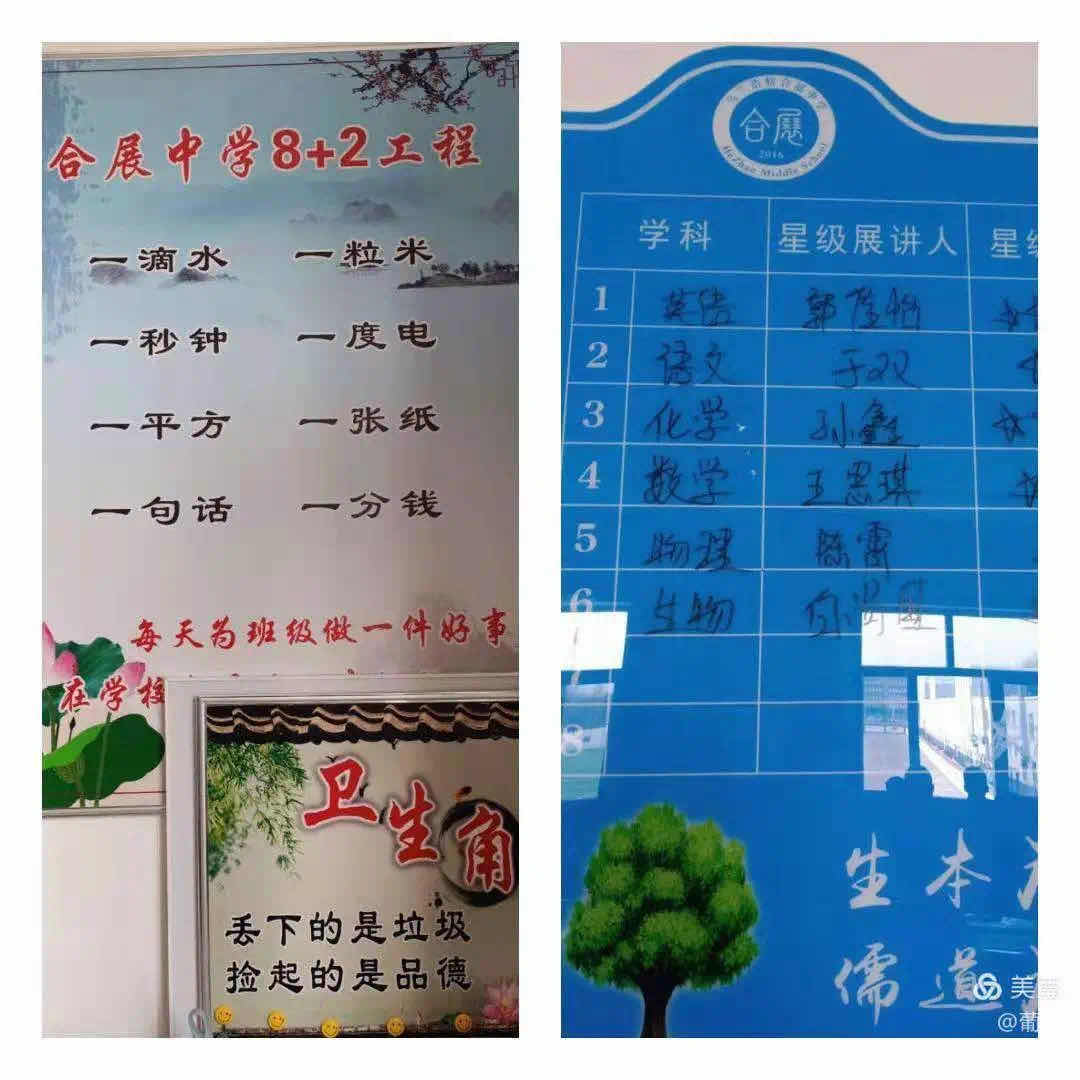 合展中学8+2工程
一滴水 一粒米
一秒钟 一度电
一平方 一张纸
一句话 一分钱
每天为班级做一件好事
在学校
卫生角
丢下的是垃圾
捡起的是品德
合展
2016
HeZhan Middle School
学科 星级展讲人 星级
1 英语
2 语文 于双
3 化学 孙鑫
4 数学 王思琪
5 物理 陈雷
6 生物
7
8
生本
儒道
美篇
@葡